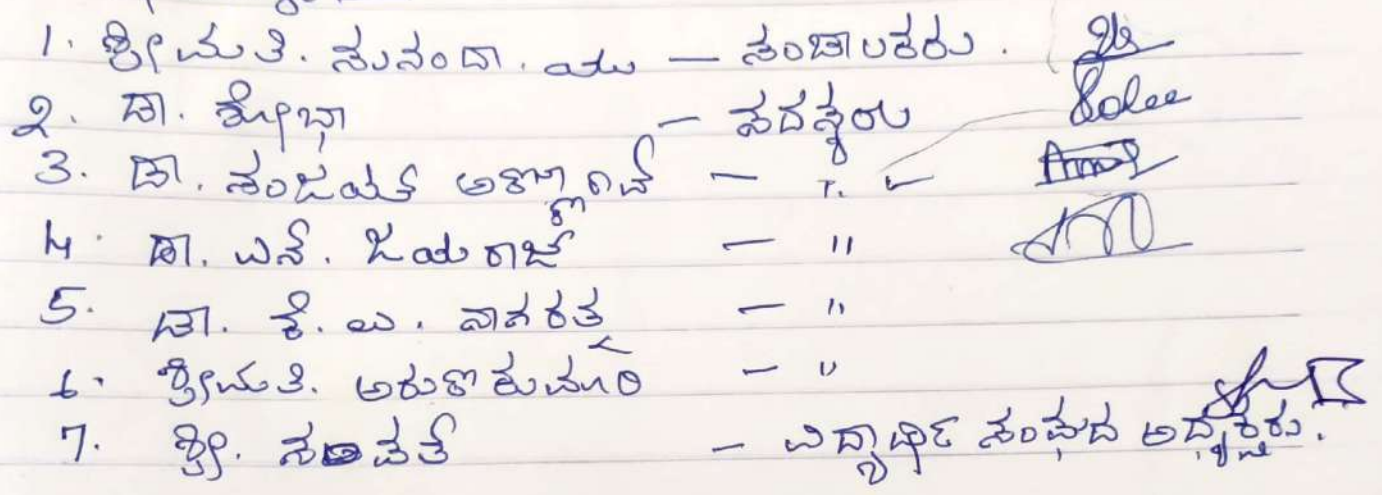 1. ಶ್ರೀಮತಿ. ಸುನಂದಾ. ಯು — ಸಂಚಾಲಕರು.
2. ಡಾ. ಶೋಭಾ — ಸದಸ್ಯರು
3. ಡಾ. ಸಂಜಯ್ — "
4. ಡಾ. ಎನ್. ಜಯರಾಜ್ — "
5. ಡಾ. ಕೆ. ಬಿ. ನಾಗರತ್ನ — "
6. ಶ್ರೀಮತಿ. ಅರುಣಕುಮಾರಿ — "
7. ಶ್ರೀ. — ವಿದ್ಯಾರ್ಥಿ ಸಂಘದ ಅಧ್ಯಕ್ಷರು.